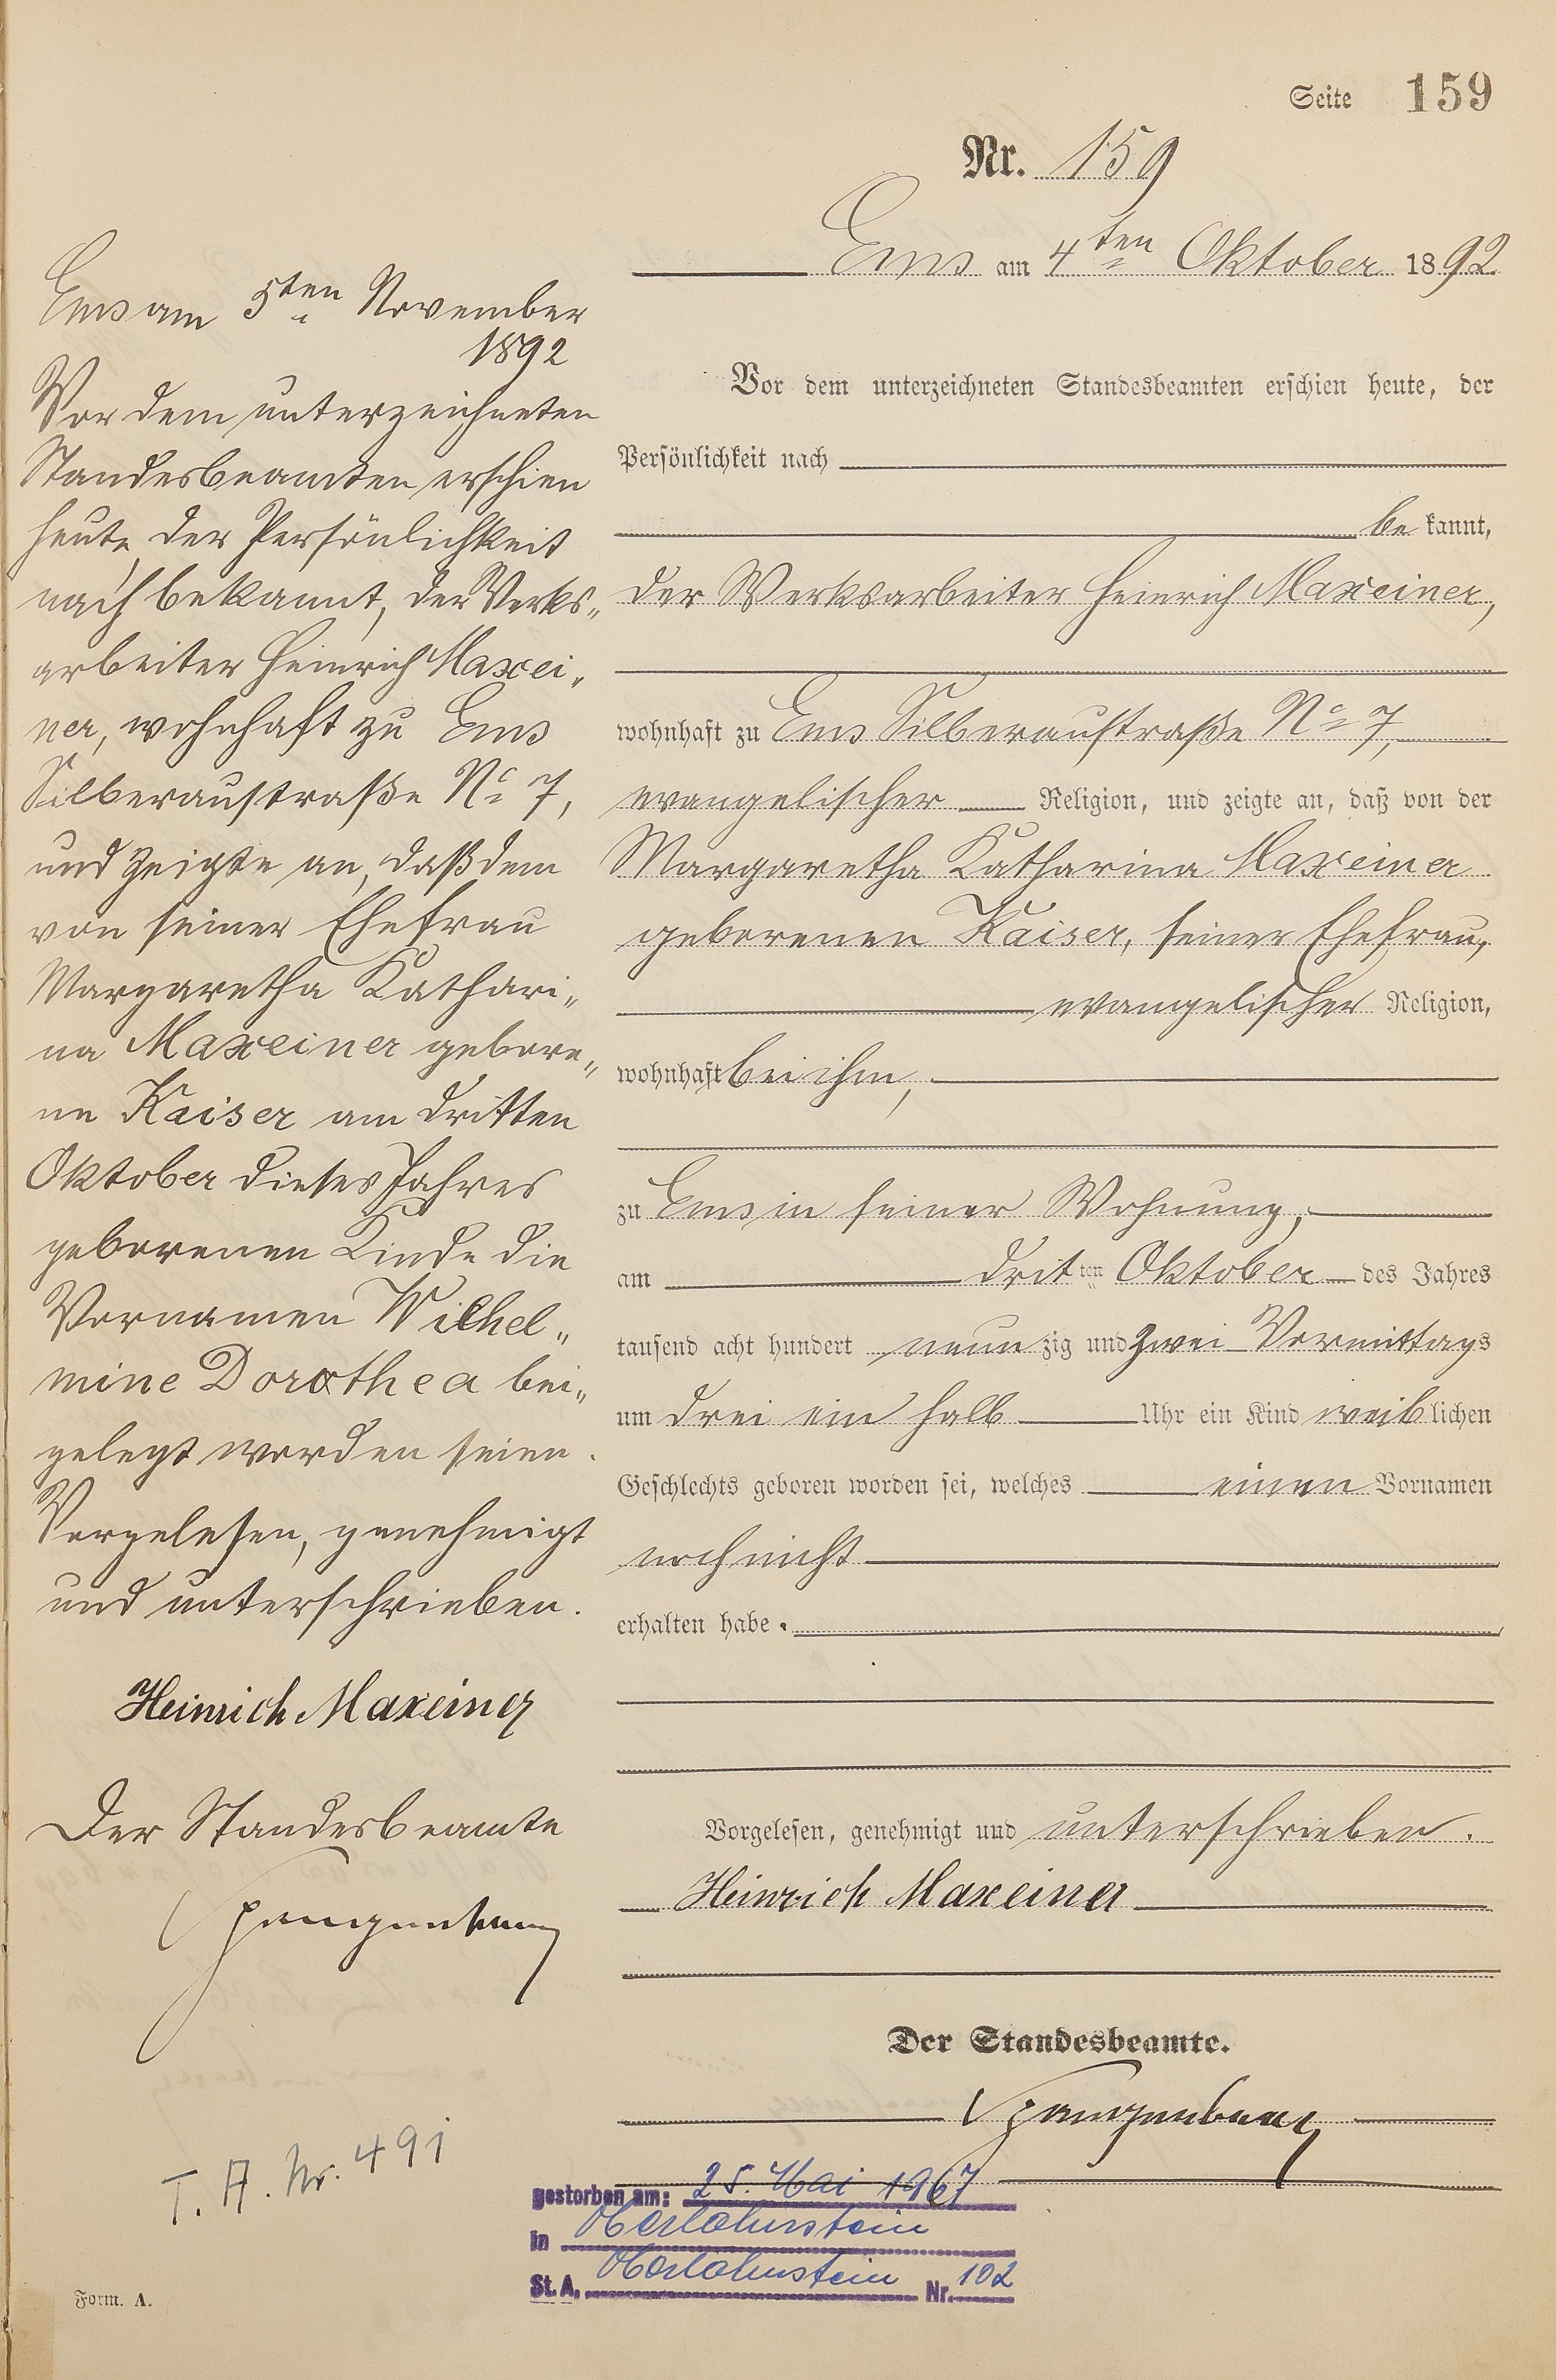 Seite 159
Nr. 159
Ems am 4ten Oktober 1892
Vor dem unterzeichneten Standesbeamten erschien heute, der
Persönlichkeit nach
be kannt,
der Werksarbeiter Heinrich Maxeiner,
wohnhaft zu Ems Silberaustraße No 7,
evangelischer Religion, und zeigte an, daß von der
Margaretha Katharina Maxeiner
geborenen Kaiser, seiner Ehefrau,
evangelischer Religion,
wohnhaft bei ihm,
zu Ems in seiner Wohnung,
am dritten Oktober des Jahres
tausend acht hundert neunzig und zwei Vormittags
um drei ein halb Uhr ein Kind weiblichen
Geschlechts geboren worden sei, welches einen Vornamen
noch nicht
erhalten habe.
Vorgelesen, genehmigt und unterschrieben.
Heinrich Maxeiner
Der Standesbeamte.
Spangenberg
Ems am 5ten November
1892
Vor dem unterzeichneten
Standesbeamten erschien
heute, der Persönlichkeit
nach bekannt, der Werks„
arbeiter Heinrich Maxei„
ner, wohnhaft zu Ems
Silberaustraße No 7,
und zeigte an, daß dem
von seiner Ehefrau
Margaretha Kathari„
na Maxeiner gebore„
ne Kaiser am dritten
Oktober dieses Jahres
geborenen Kinde die
Vornamen Wilhel„
mine Dorothea bei„
gelegt worden seien.
Vorgelesen, genehmigt
und unterschrieben.
Heinrich Maxeiner
Der Standesbeamte
Spangenberg
T. A. Nr. 491
gestorben am: 25. Mai 1967
in Oberlahnstein
St. A. Oberlahnstein Nr. 102
Form. A.